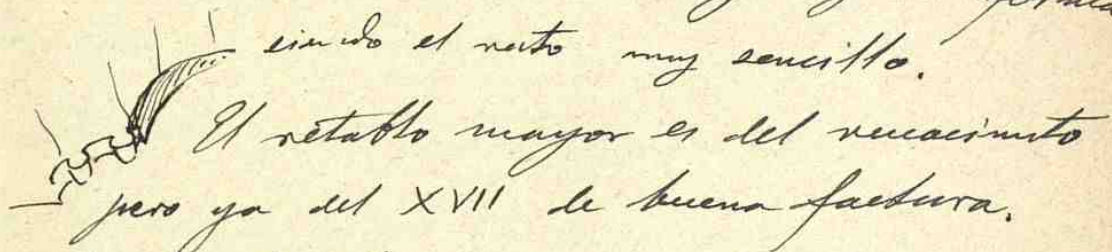 siendo el resto muy sencillo.
El retablo mayor es del renacimiento
pero ya del XVII de buena factura.